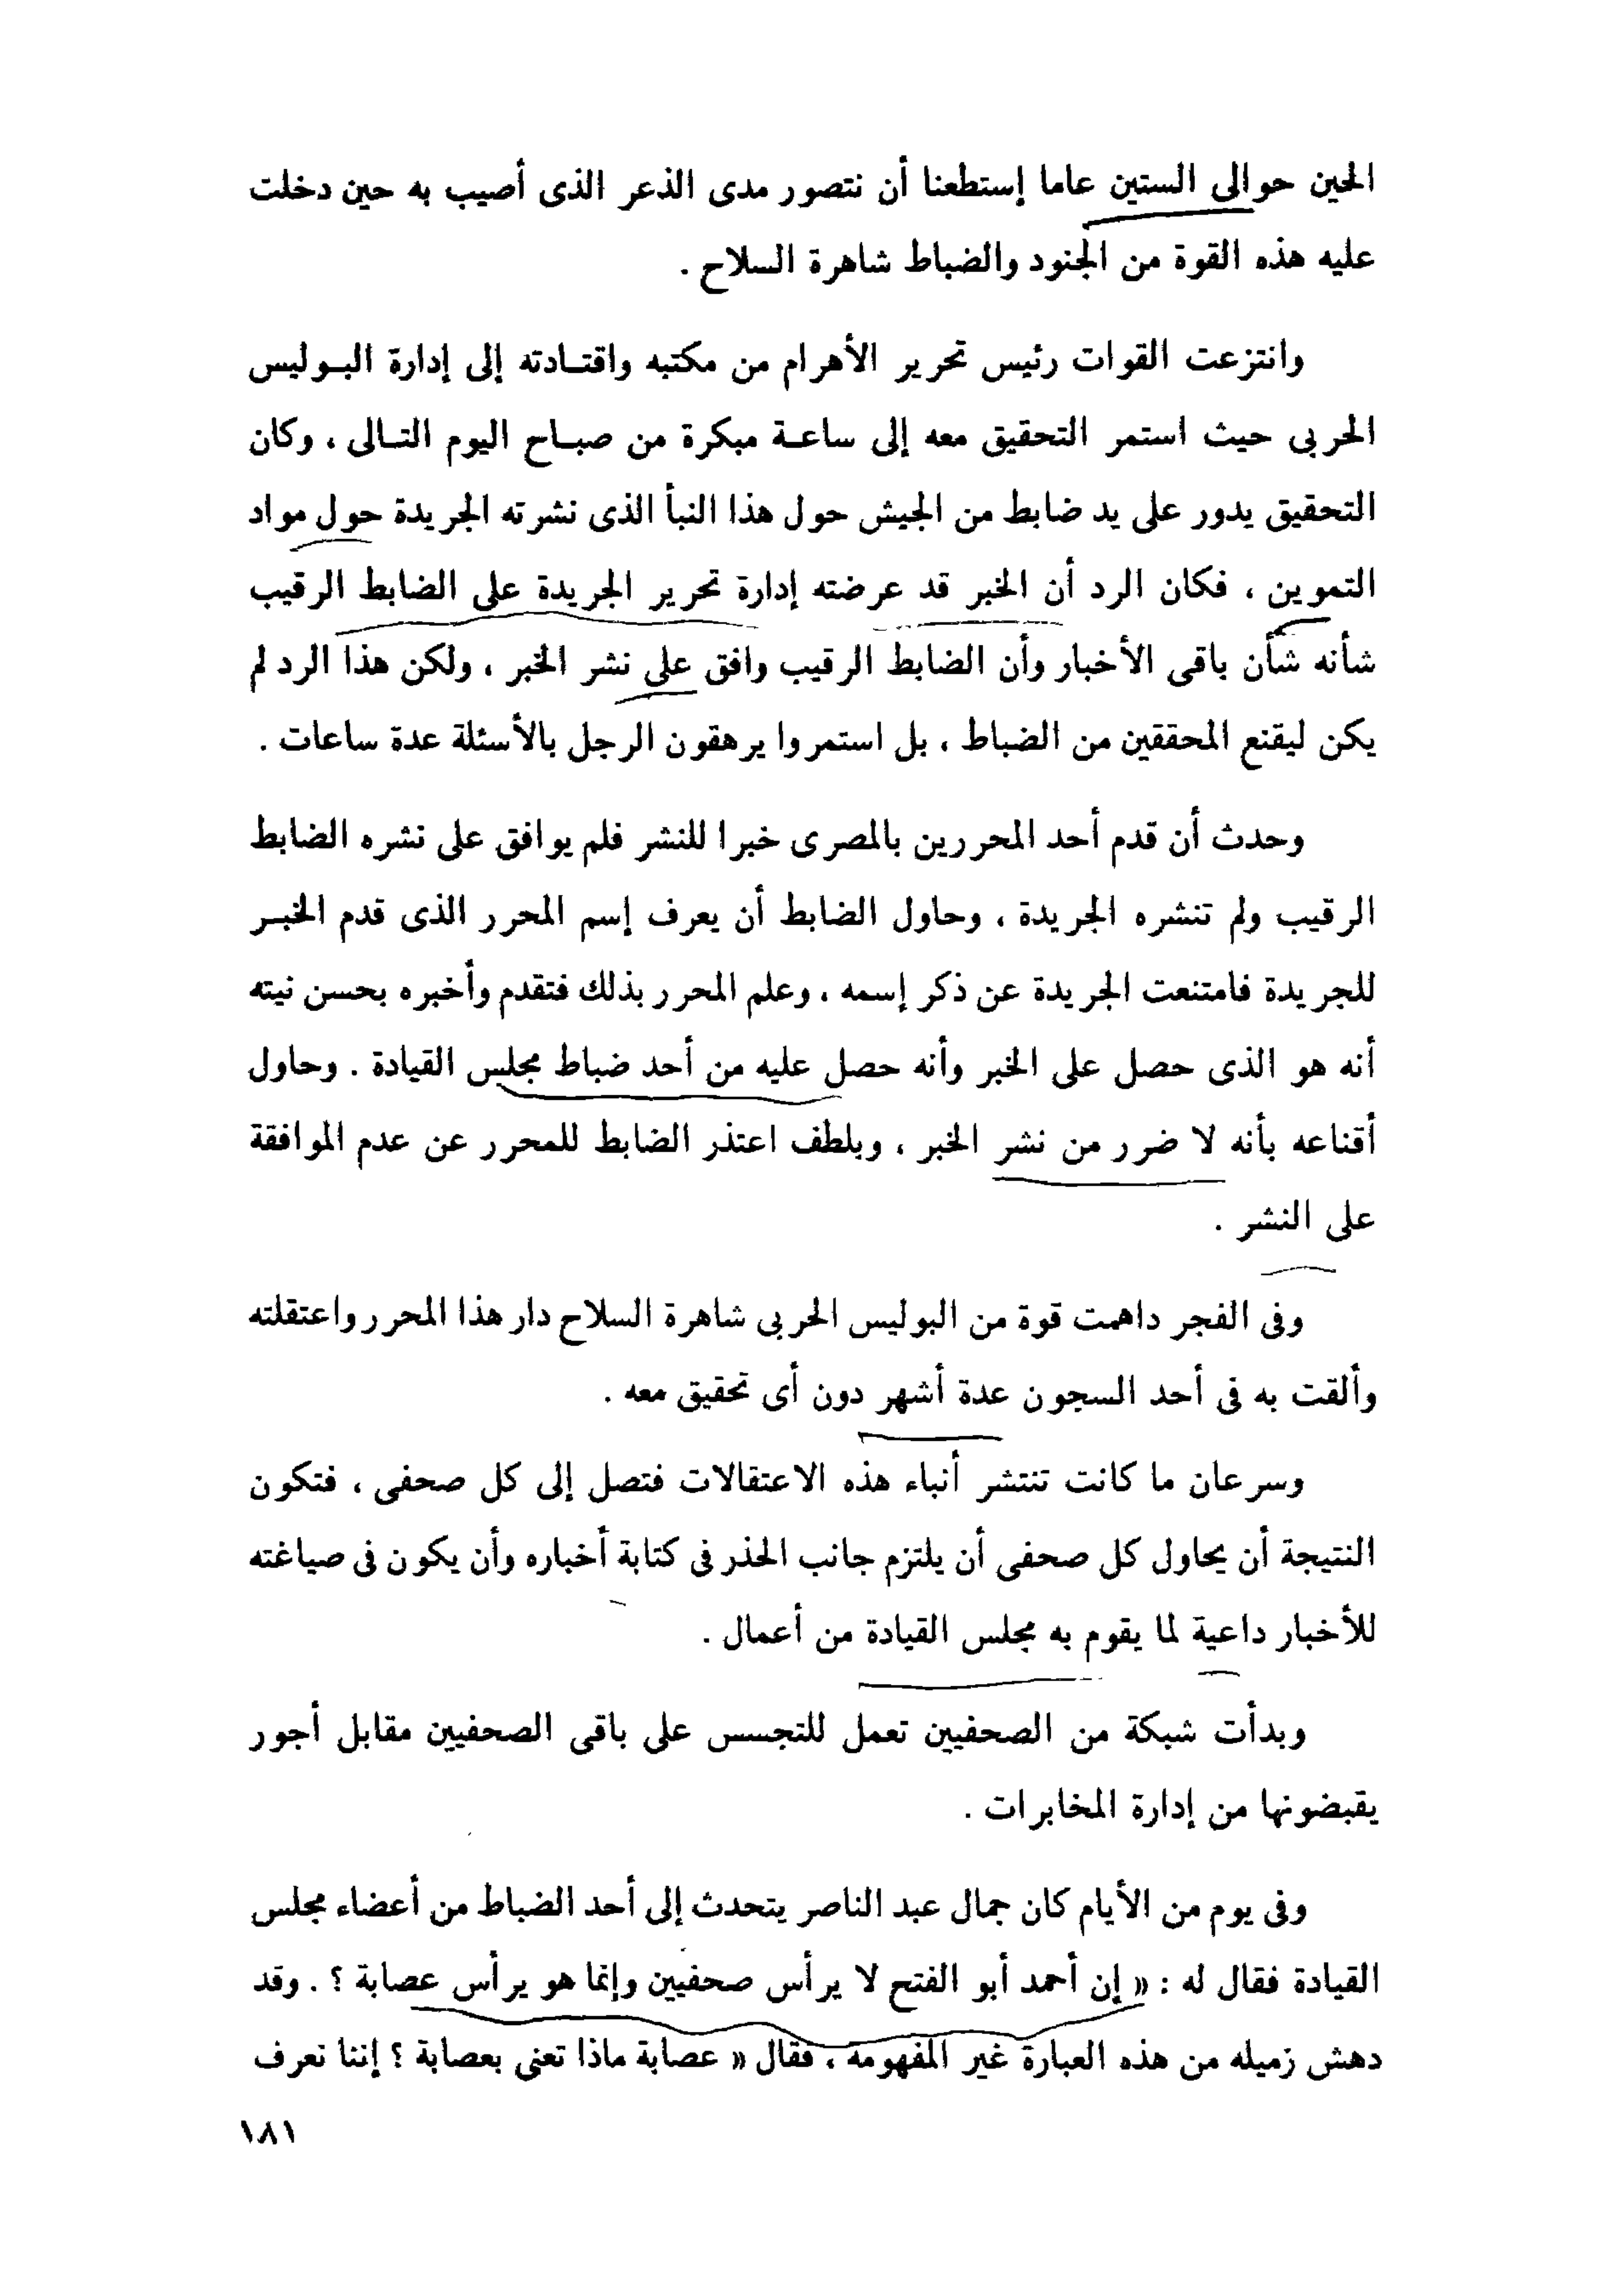 الحين حوالى الستين عاما إستطعنا أن نتصور مدى الذعر الذى أصيب به حين دخلت
عليه هذه القوة من الجنود والضباط شاهرة السلاح .
وانتزعت القوات رئيس تحرير الأهرام من مكتبه واقتـادته إلى إدارة البـوليس
الحربى حيث استمر التحقيق معه إلى ساعـة مبكرة من صبـاح اليوم التـالى ، وكان
التحقيق يدور على يد ضابط من الجيش حول هذا النبأ الذى نشرته الجريدة حول مواد
التموين ، فكان الرد أن الخبر قد عرضته إدارة تحرير الجريدة على الضابط الرقيب
شأنه شأن باقى الأخبار وأن الضابط الرقيب وافق على نشر الخبر ، ولكن هذا الرد لم
يكن ليقنع المحققين من الضباط ، بل استمروا يرهقون الرجل بالأسئلة عدة ساعات .
وحدث أن قدم أحد المحررين بالمصرى خبرا للنشر فلم يوافق على نشره الضابط
الرقيب ولم تنشره الجريدة ، وحاول الضابط أن يعرف إسم المحرر الذى قدم الخبـر
للجريدة فامتنعت الجريدة عن ذكر إسمه ، وعلم المحرر بذلك فتقدم وأخبره بحسن نيته
أنه هو الذى حصل على الخبر وأنه حصل عليه من أحد ضباط مجلس القيادة . وحاول
أقناعه بأنه لا ضرر من نشر الخبر ، وبلطف اعتذر الضابط للمحرر عن عدم الموافقة
على النشر .
وفى الفجر داهمت قوة من البوليس الحربى شاهرة السلاح دار هذا المحرر واعتقلته
وألقت به فى أحد السجون عدة أشهر دون أى تحقيق معه .
وسرعان ما كانت تنتشر أنباء هذه الاعتقالات فتصل إلى كل صحفى ، فتكون
النتيجة أن يحاول كل صحفى أن يلتزم جانب الحذر فى كتابة أخباره وأن يكون فى صياغته
للأخبار داعية لما يقوم به مجلس القيادة من أعمال .
وبدأت شبكة من الصحفيين تعمل للتجسس على باقى الصحفيين مقابل أجور
يقبضونها من إدارة المخابرات .
وفى يوم من الأيام كان جمال عبد الناصر يتحدث إلى أحد الضباط من أعضاء مجلس
القيادة فقال له : « إن أحمد أبو الفتح لا يرأس صحفيين وإنما هو يرأس عصابة ؟ . وقد
دهش زميله من هذه العبارة غير المفهومة ، فقال « عصابة ماذا تعنى بعصابة ؟ إننا نعرف
١٨١